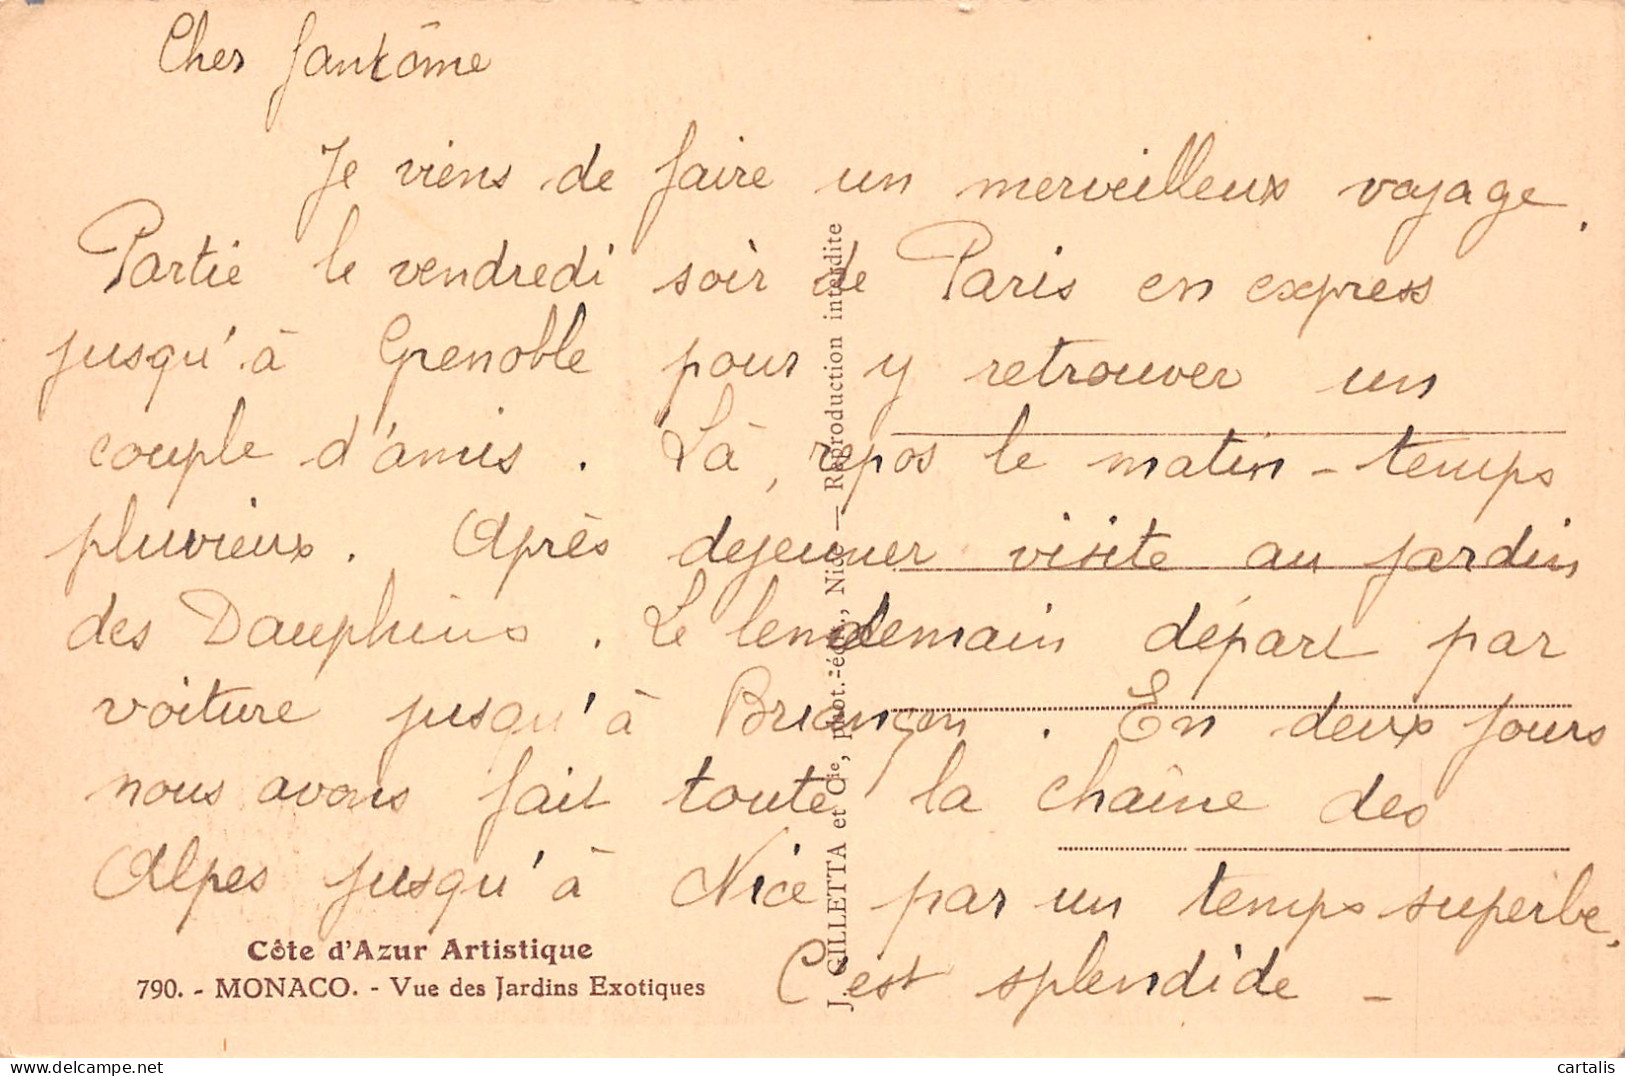 Cher fantôme
Je viens de faire un merveilleux voyage.
Partie le vendredi soir de Paris en express
jusqu'à Grenoble pour y retrouver un
couple d'amis. Là, repos le matin - temps
pluvieux. Après dejeuner visite au jardin
des Dauphins. Le lendemain départ par
voiture jusqu'à Briançon. En deux jours
nous avons fait toute la chaîne des
Alpes jusqu'à Nice par un temps superbe.
C'est splendide -
Côte d'Azur Artistique
790. - MONACO. - Vue des Jardins Exotiques
J. GILLETTA et Cie, phot.-édit., Nice — Reproduction interdite
cartalis